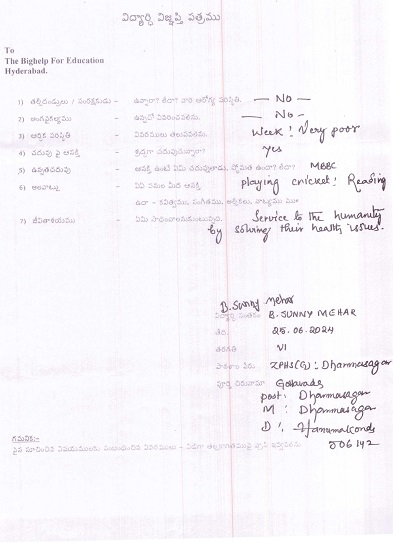 విద్యార్థి విజ్ఞప్తి పత్రము
To
The Bighelp For Education
Hyderabad.
1) తల్లిదండ్రులు / సంరక్షకుడు – ఉన్నారా? లేదా? వారి ఆరోగ్య పరిస్థితి. — No —
2) అంగవైకల్యము – ఉన్నచో వివరించవలెను. — No —
3) ఆర్థిక పరిస్థితి – వివరములు తెలుపవలెను. Week! Very poor
4) చదువు పై ఆసక్తి – శ్రద్ధగా చదువుతున్నారా? Yes
5) ఉన్నతచదువు – ఆసక్తి ఉంటే ఏమి చదువుతారు. స్తోమత ఉందా? లేదా? MBBC
6) అలవాట్లు – ఏఏ పనుల మీద ఆసక్తి. playing cricket! Reading
ఉదా – కవిత్వము, సంగీతము,
7) జీవితాశయము – ఏమి సాధించాలనుకుంటున్నారు. Service to the humanity
by solving their health issues.
B. Sunny Mehar
విద్యార్థి సంతకం B. SUNNY MEHAR
తేది. 25.06.2024
తరగతి VI
పాఠశాల పేరు. ZPHS(G): Dharmasagar
పూర్తి చిరునామా
post: Dharmasagar
M: Dharmasagar
D: Hanumakonda
506142
గమనిక:-
పైన సూచించిన విషయములకు సంబంధించిన వివరములు –